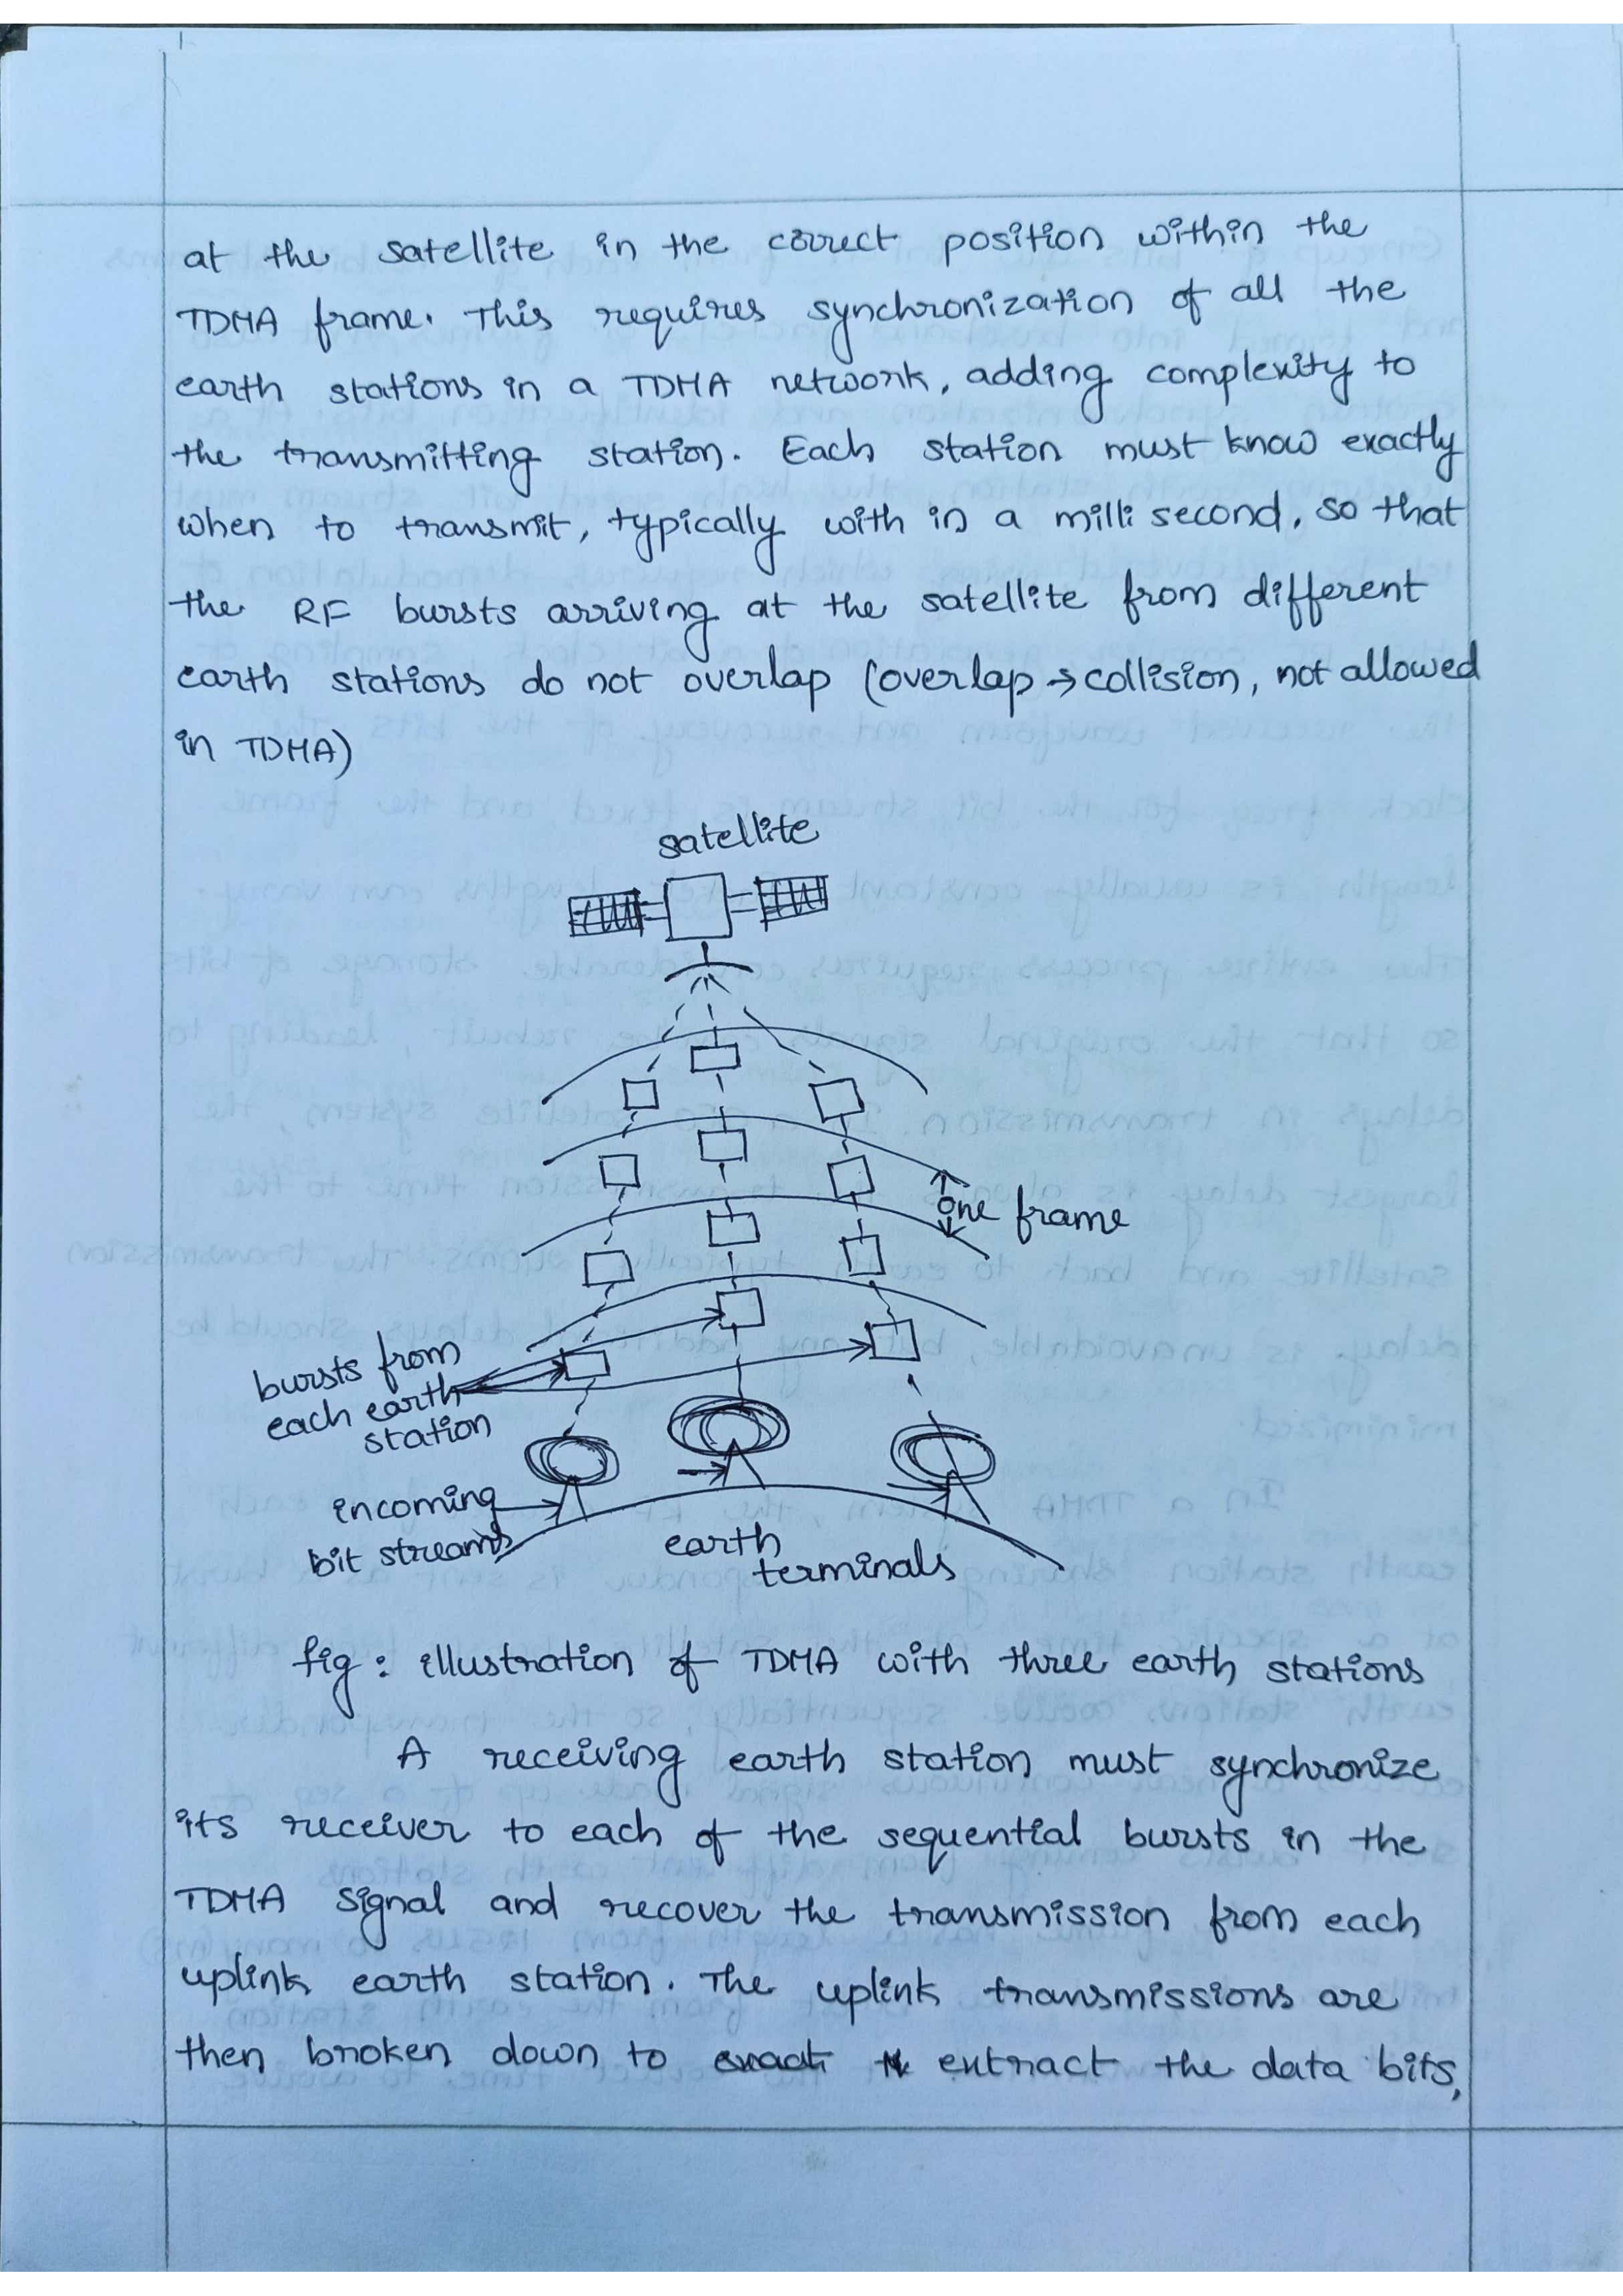 at the satellite in the correct position within the
TDMA frame. This requires synchronization of all the
earth stations in a TDMA network, adding complexity to
the transmitting station. Each station must know exactly
when to transmit, typically with in a milli second, so that
the RF bursts arriving at the satellite from different
earth stations do not overlap (overlap → collision, not allowed
in TDMA)
satellite
one frame
bursts from
each earth
station
incoming
bit streams
earth
terminals
fig : illustration of TDMA with three earth stations
A receiving earth station must synchronize
its receiver to each of the sequential bursts in the
TDMA signal and recover the transmission from each
uplink earth station. The uplink transmissions are
then broken down to extract the data bits,